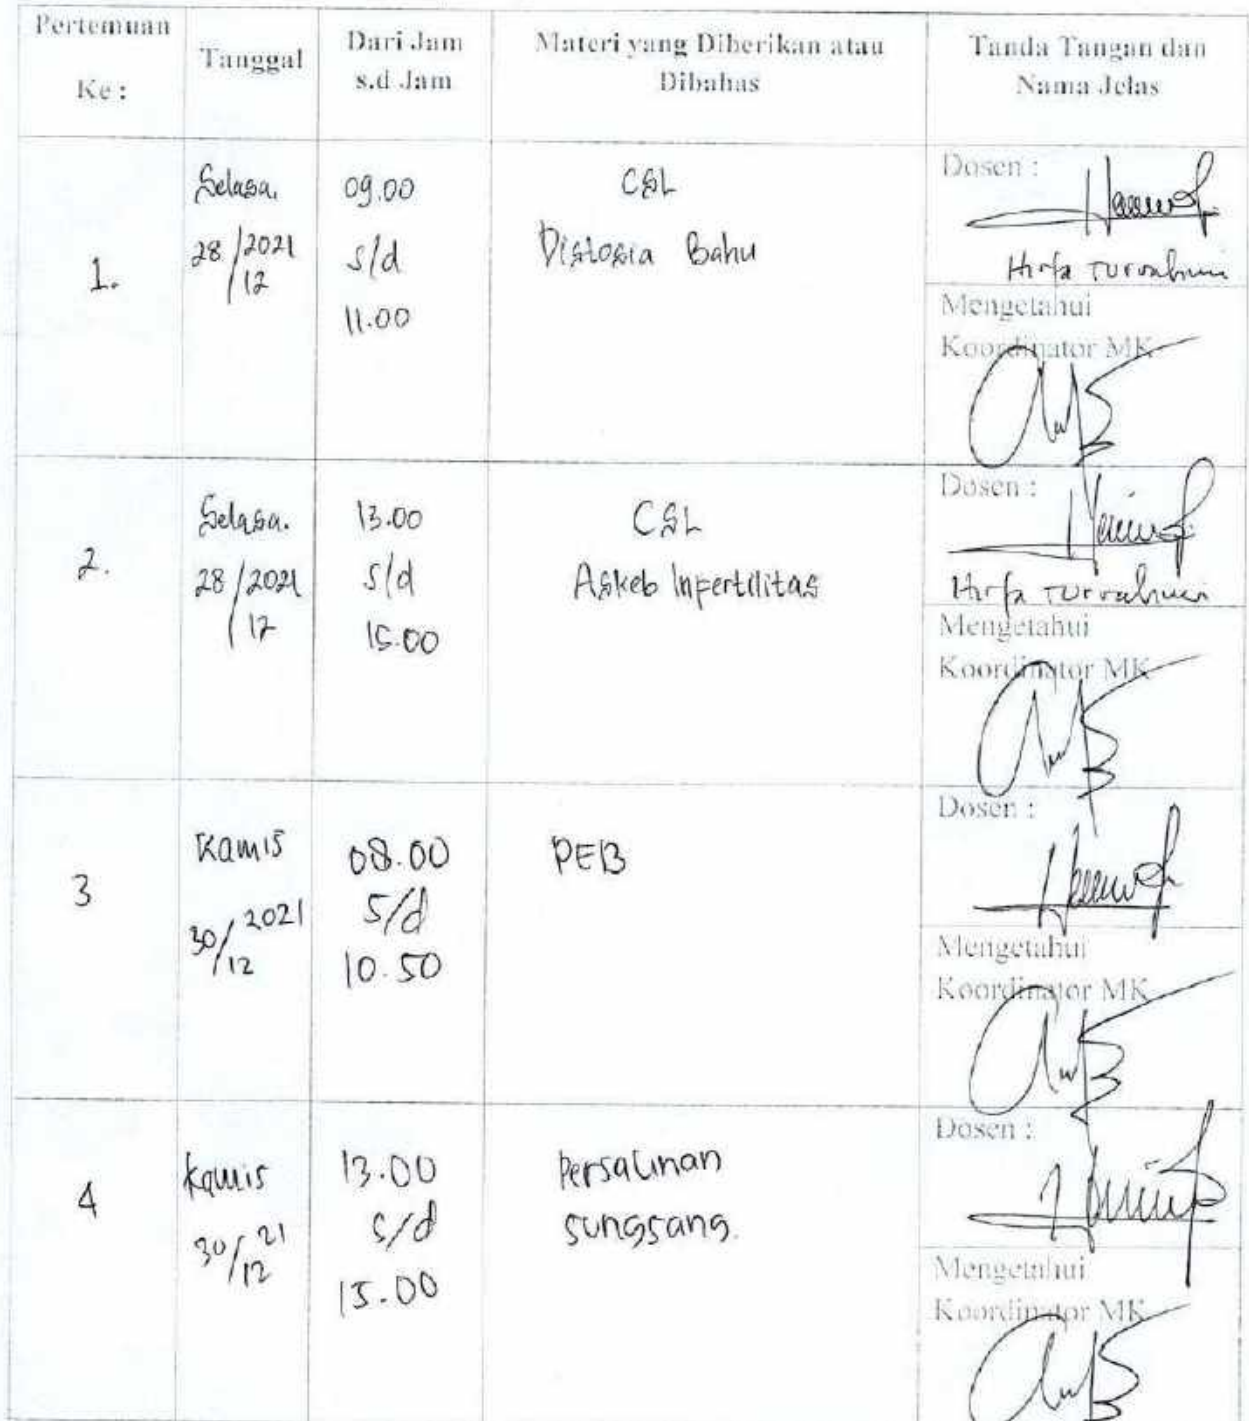 Pertemuan
Ke :
Tanggal
Dari Jam
s.d Jam
Materi yang Diberikan atau
Dibahas
Tanda Tangan dan
Nama Jelas
1.
Selasa,
28/12 2021
09.00
s/d
11.00
CSL
Distosia Bahu
Dosen :
Mengetahui
Koordinator MK
2.
Selasa.
28/12 2021
13.00
s/d
15.00
CSL
Askeb Infertilitas
Dosen :
Mengetahui
Koordinator MK
3
Kamis
30/12 2021
08.00
s/d
10.50
PEB
Dosen :
Mengetahui
Koordinator MK
4
Kamis
30/12 21
13.00
s/d
15.00
Persalinan
sungsang.
Dosen :
Mengetahui
Koordinator MK